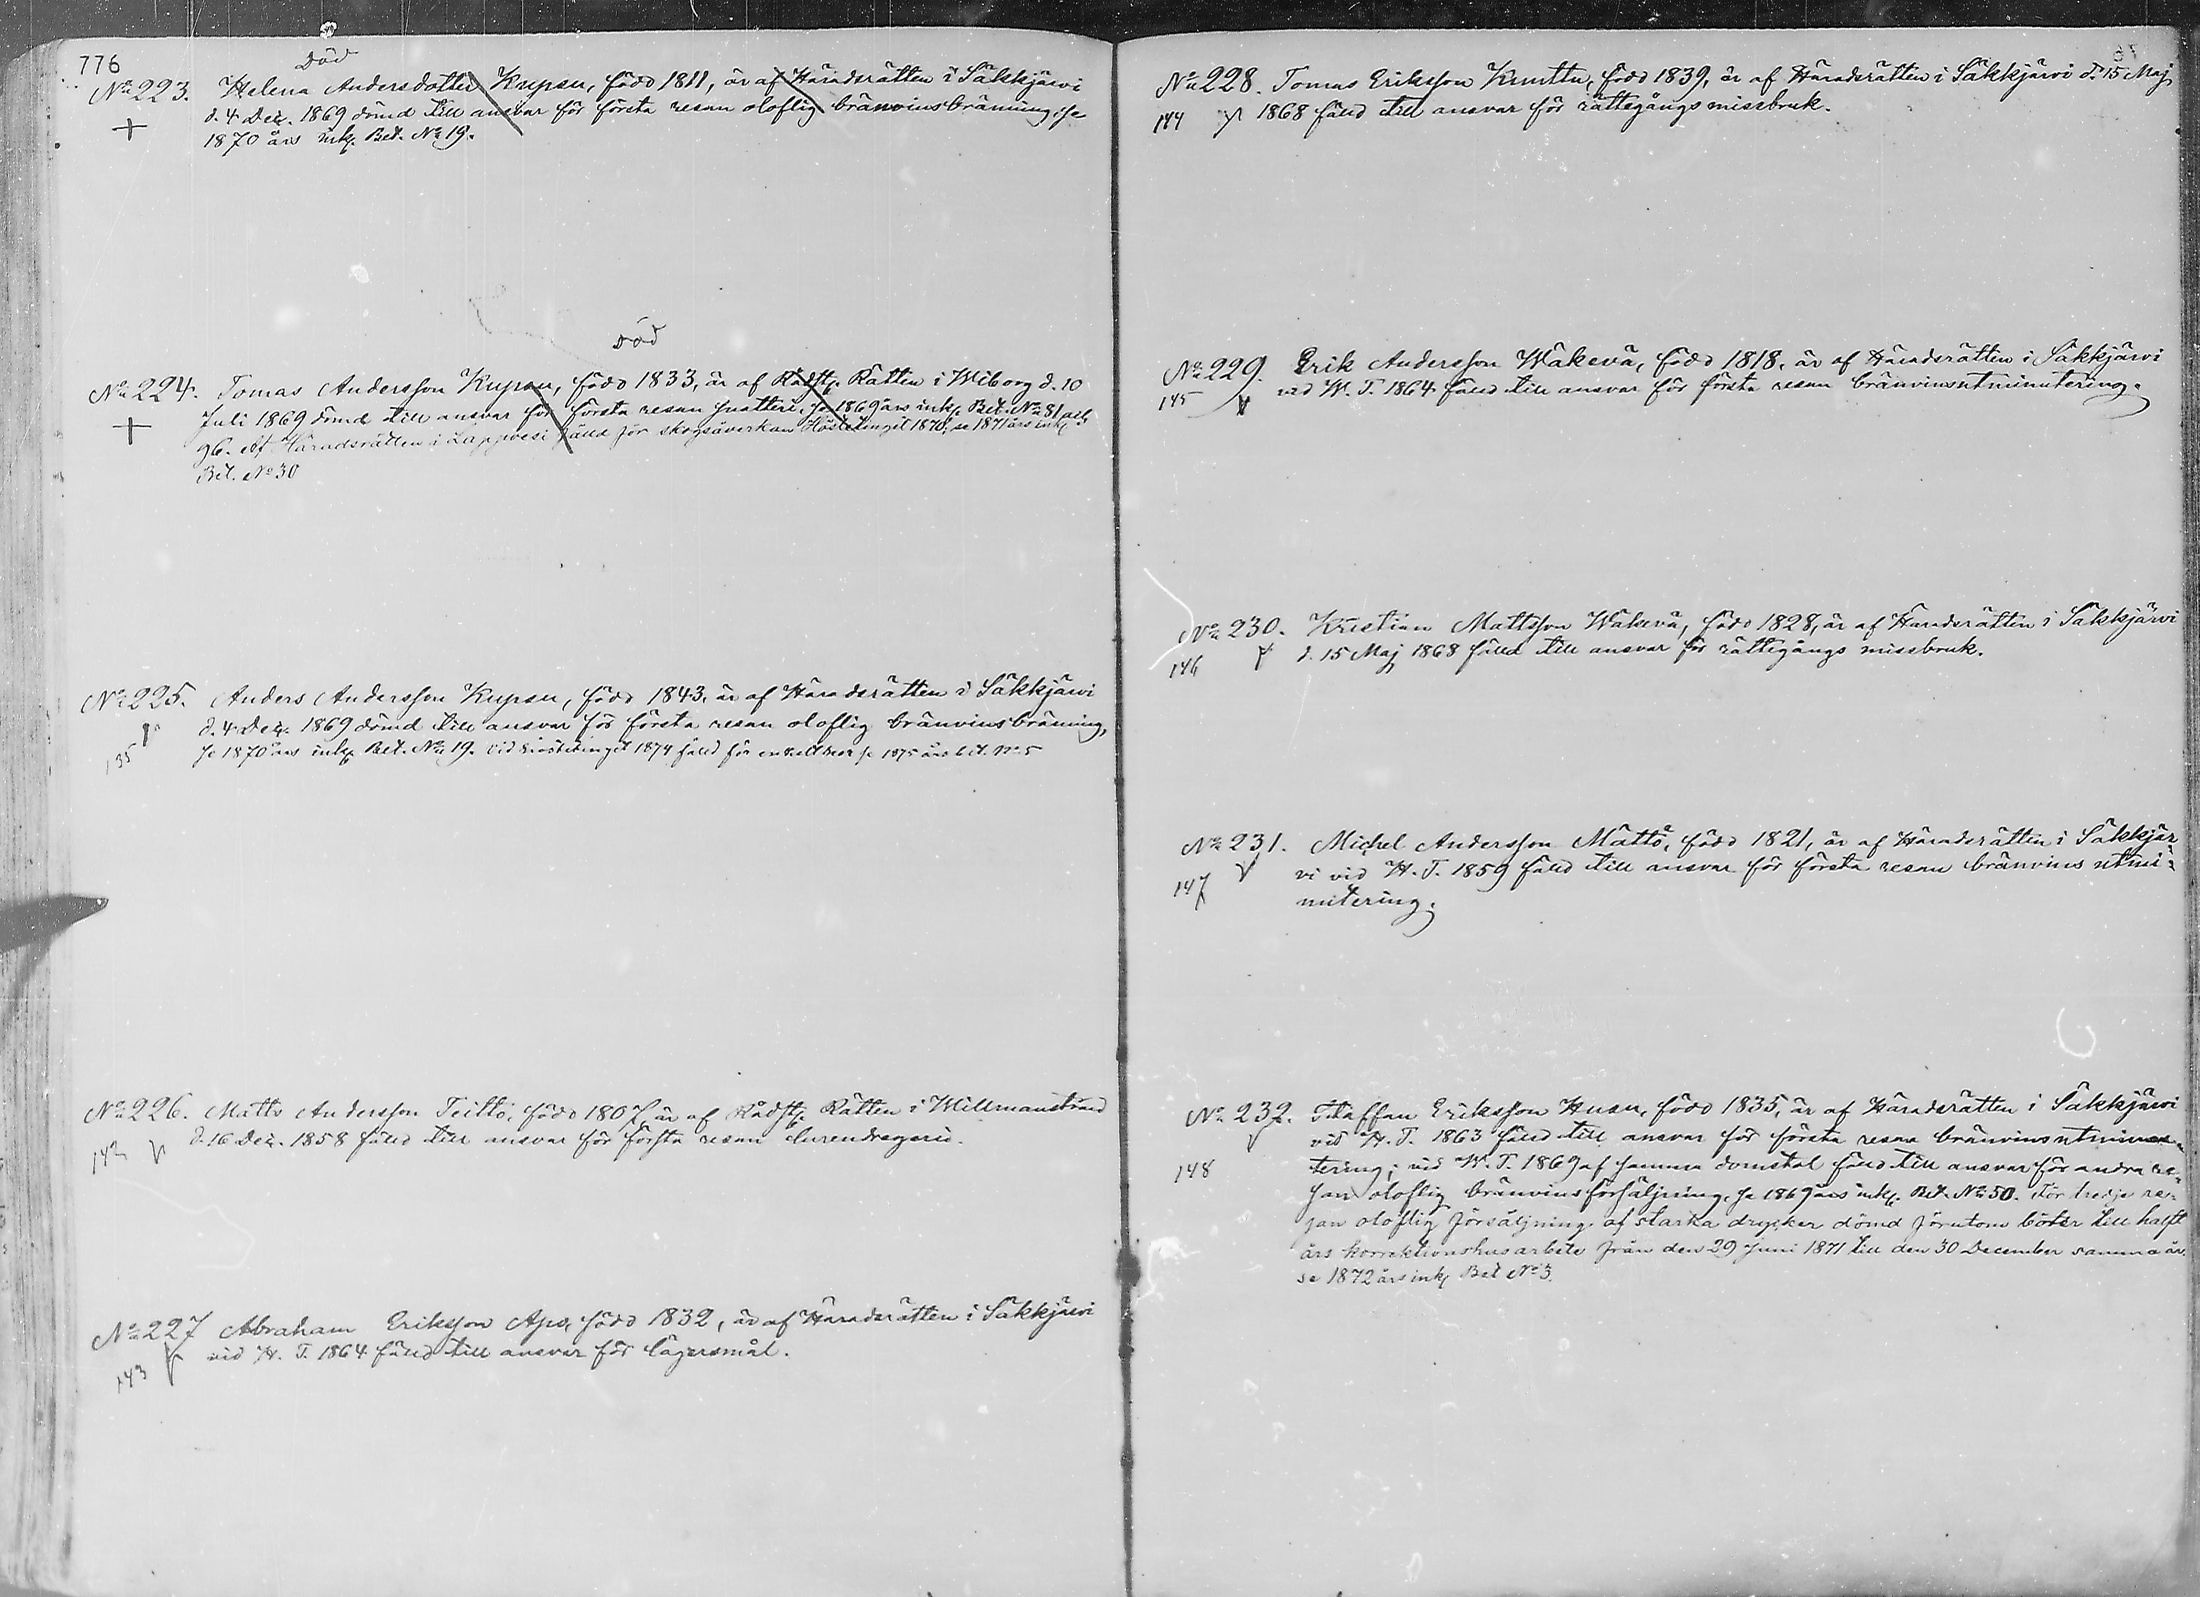 776
Död
No 223. Helena Andersdotter Kupsu, född 1811, är af Häradsrätten i Säkkjärvi
+ d. 4 Dec. 1869 dömd till ansvar för första resan oloflig bränvinsbränning, se
1870 års ink. Bet. No 19.
Död
No 224. Tomas Andersson Kupsu, född 1833, är af Rådst. Rätten i Wiborg d. 10
+ Juli 1869 dömd till ansvar för första resan snatteri, se 1869 års ink. Bet. No 81 och
96. Af Häradsrätten i Lappvesi fälld för skogsåverkan Hösttinget 1870, se 1871 års ink.
Bet. No 30
No 225. Anders Andersson Kupsu, född 1843, är af Häradsrätten i Säkkjärvi
d. 4 Dec. 1869 dömd till ansvar för första resan oloflig bränvinsbränning,
135 se 1870 års ink. Bet. No 19. Vid hösttinget 1874 fälld för enkelt hor se 1875 års bet. No 5
No 226. Matts Andersson Teittö, född 1807, är af Rådst. Rätten i Willmanstrand
142 d. 16 Dec. 1858 fälld till ansvar för första resan lurendrägeri.
No 227 Abraham Eriksson Apo, född 1832, är af Häradsrätten i Säkkjärvi
143 vid H. T. 1864 fälld till ansvar för lägersmål.
No 228. Tomas Eriksson Knuttu, född 1839, är af Häradsrätten i Säkkjärvi d. 15 Maj
144 1868 fälld till ansvar för rättegångs missbruk.
No 229. Erik Andersson Wäkevä, född 1818, är af Häradsrätten i Säkkjärvi
145 vid W. T. 1864 fälld till ansvar för första resan bränvinsutminutering.
No 230. Kristian Mattsson Wäkevä, född 1828, är af Häradsrätten i Säkkjärvi
146 d. 15 Maj 1868 fälld till ansvar för rättegångs missbruk.
No 231. Michel Andersson Mättö, född 1821, är af Häradsrätten i Säkkjär-
147 vi vid H. T. 1859 fälld till ansvar för första resan bränvins utmi-
nutering.
No 232. Staffan Eriksson Husu, född 1835, är af Häradsrätten i Säkkjärvi
vid H. T. 1863 fälld till ansvar för första resan bränvinsutminu-
148 tering; vid W. T. 1869 af samma domstol fälld till ansvar för andra re-
san oloflig bränvinsförsäljning, se 1869 års ink. Bet. No 50. För tredje re-
san oloflig försäljning af starka drycker dömd förutom böter till halft
års korrektionshusarbete från den 29 Juni 1871 till den 30 December samma år
se 1872 års ink. Bet No 3.